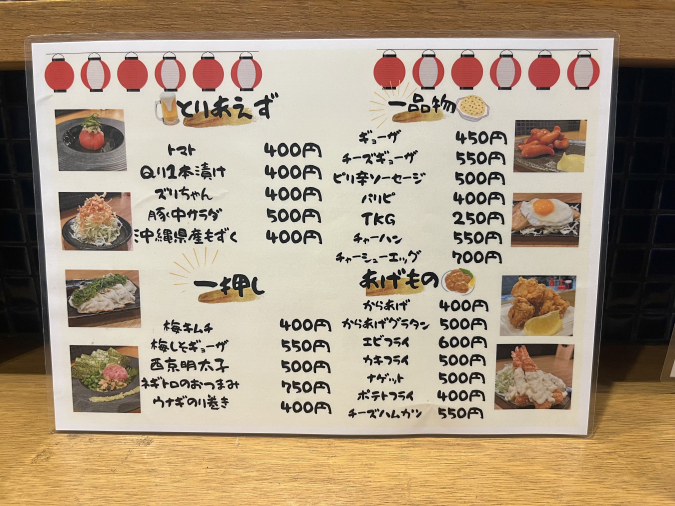 とりあえず
トマト 400円
Qり1本漬け 400円
ズリちゃん 400円
豚中サラダ 500円
沖縄県産もずく 400円
一押し
梅キムチ 400円
梅しそギョーザ 550円
西京明太子 500円
ネギトロのおつまみ 750円
ウナギのり巻き 400円
一品物
ギョーザ 450円
チーズギョーザ 550円
ピリ辛ソーセージ 500円
パリピ 400円
TKG 250円
チャーハン 550円
チャーシューエッグ 700円
あげもの
からあげ 400円
からあげグラタン 500円
エビフライ 600円
カキフライ 500円
ナゲット 500円
ポテトフライ 400円
チーズハムカツ 550円